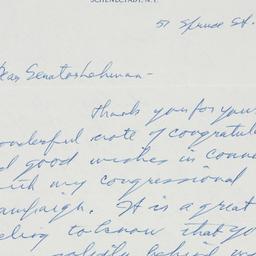 SCHENECTADY, N.Y.
57 Spruce St.
Dear Senator Lehman -
Thank you for your
wonderful note of congratul
d good wishes in conn
with my congressional
campaign. It is a great
eling to know that yo
solidly behind